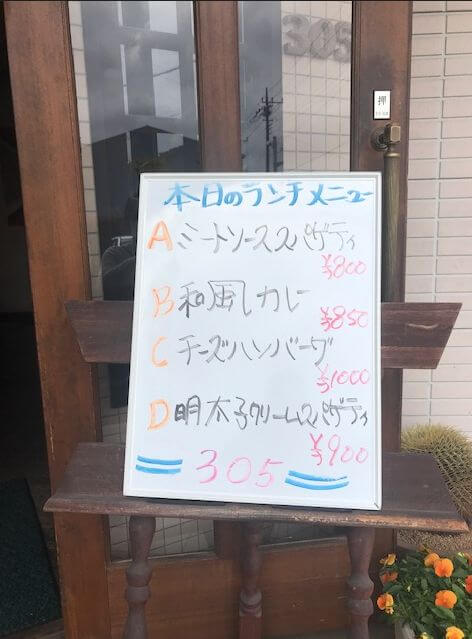 305
押
本日のランチメニュー
A ミートソーススパゲティ
¥800
B 和風カレー
¥850
C チーズハンバーグ
¥1000
D 明太子クリームスパゲティ
¥900
305